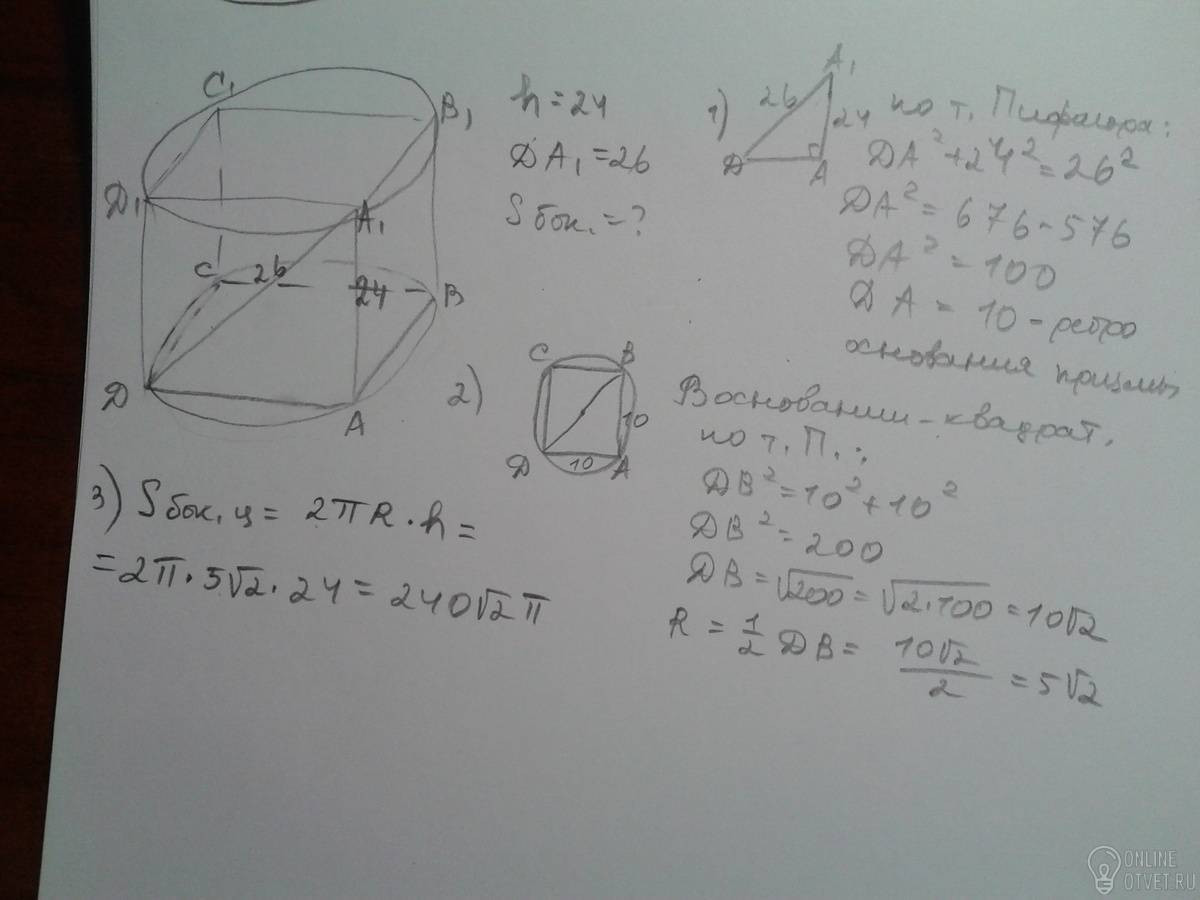 C₁
B₁
D₁
A₁
C
26
24
B
D
A
h = 24
DA₁ = 26
S бок. = ?
1)
A₁
26
24
D
A
по т. Пифагора:
DA² + 24² = 26²
DA² = 676 - 576
DA² = 100
DA = 10 - ребро
основания призмы
2)
C B
10
D 10 A
В основании - квадрат.
по т. П.:
DB² = 10² + 10²
DB² = 200
DB = √200 = √2·100 = 10√2
R = 1/2 DB = 10√2/2 = 5√2
3) S бок. ц = 2πR · h =
= 2π · 5√2 · 24 = 240√2 π
ONLINE
OTVET.RU